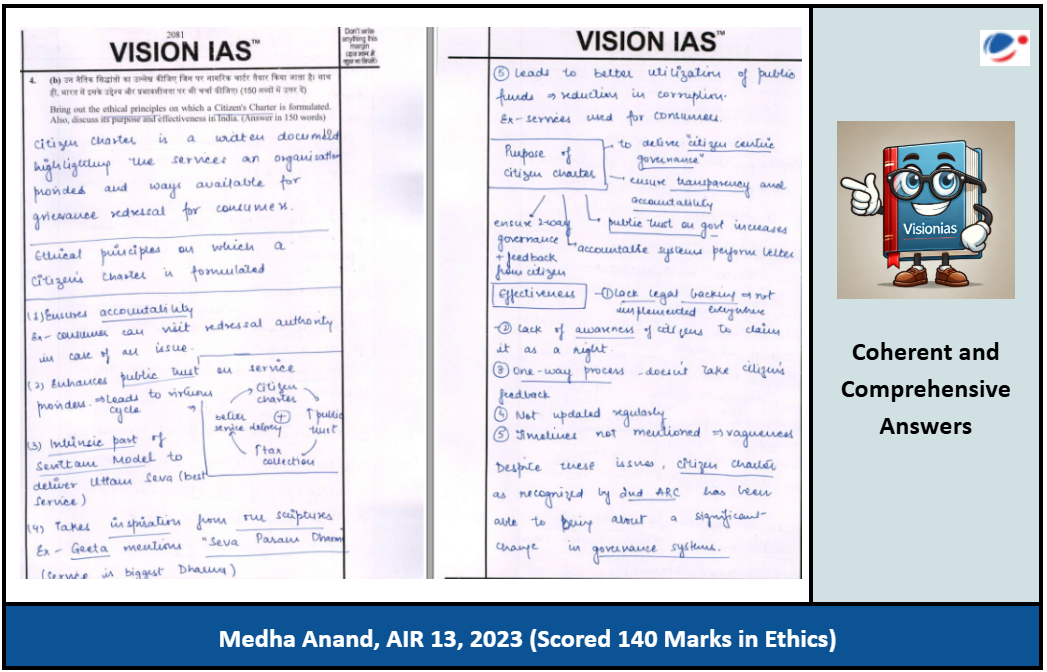 2081
VISION IAS™
Don't write
anything this
margin
4. (b) उन नैतिक सिद्धांतों का उल्लेख कीजिए जिन पर नागरिक चार्टर तैयार किया जाता है। साथ
ही, भारत में इसके उद्देश्य और प्रभावशीलता पर भी चर्चा कीजिए। (150 शब्दों में उत्तर दें)
Bring out the ethical principles on which a Citizen's Charter is formulated.
Also, discuss its purpose and effectiveness in India. (Answer in 150 words)
10
Citizen charter is a written document
highlighting the services an organisation
provides and ways available for
grievance redressal for consumer.
Ethical principles on which a
citizen's charter is formulated
(1) Ensures accountability
Ex- consumer can visit redressal authority
in case of an issue.
(2) Enhances public trust on service
providers. ⇒ Leads to virtuous
cycle
→ Citizen
charter
↑ public
trust
↑ tax
collection
better
service delivery
+
(3) Intrinsic part of
Sevottam Model to
deliver Uttam Seva (best
service)
(4) Takes inspiration from our scriptures
Ex- Geeta mentions "Seva Param Dharm
(service is biggest Dharma)
VISION IAS™
⑤ Leads to better utilization of public
funds ⇒ reduction in corruption.
Ex- services used for consumers.
Purpose of
citizen charter
→ to deliver "citizen centric
governance"
→ ensure transparency and
accountability
→ public trust on govt increases
→ accountable systems perform better
ensure 2-way
governance
+ feedback
from citizen
Effectiveness
- ① Lack legal backing ⇒ not
implemented everywhere
-② lack of awareness of citizens to claim
it as a right.
③ One-way process - doesn't take citizen's
feedback
④ Not updated regularly
⑤ Timelines not mentioned ⇒ vagueness
Despite these issues, citizen charter
as recognized by 2nd ARC has been
able to bring about a significant
change in governance systems.
Visionias
Coherent and
Comprehensive
Answers
Medha Anand, AIR 13, 2023 (Scored 140 Marks in Ethics)